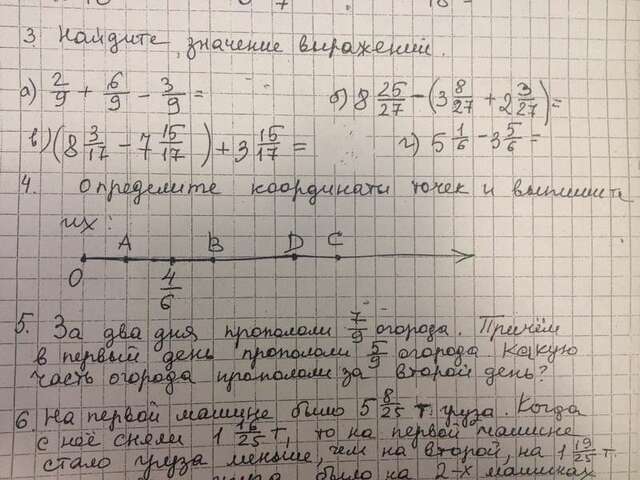 3. Найдите значение выражений.
а) 2/9 + 6/9 − 3/9 = б) 8 25/27 − (3 8/27 + 2 3/27) =
в) (8 3/17 − 7 15/17) + 3 15/17 = г) 5 1/6 − 3 5/6 =
4. Определите координаты точек и выпишите
их:
A B D C
O 4/6
5. За два дня пропололи 7/9 огорода. Причём
в первый день пропололи 5/9 огорода. Какую
часть огорода пропололи за второй день?
6. На первой машине было 5 8/25 т. груза. Когда
с неё сняли 1 16/25 т, то на первой машине
стало груза меньше, чем на второй, на 1 19/25 т.
было на 2-х машинах